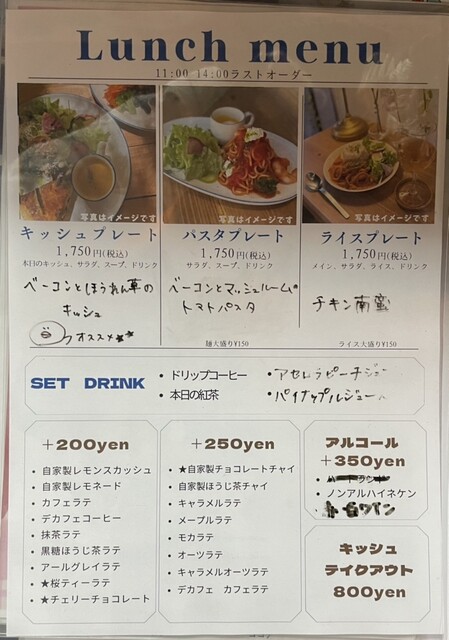 Lunch menu
11:00 14:00ラストオーダー
写真はイメージです
写真はイメージです
写真はイメージです
キッシュプレート
1,750円(税込)
本日のキッシュ、サラダ、スープ、ドリンク
ベーコンとほうれん草の
キッシュ
オススメ
パスタプレート
1,750円(税込)
サラダ、スープ、ドリンク
ベーコンとマッシュルームの
トマトパスタ
麺大盛り¥150
ライスプレート
1,750円(税込)
メイン、サラダ、ライス、ドリンク
チキン南蛮
ライス大盛り¥150
SET DRINK
・ドリップコーヒー
・本日の紅茶
・アセロラピーチジュー
・パイナップルジュー
+200yen
• 自家製レモンスカッシュ
• 自家製レモネード
• カフェラテ
• デカフェコーヒー
• 抹茶ラテ
• 黒糖ほうじ茶ラテ
• アールグレイラテ
• ★桜ティーラテ
• ★チェリーチョコレート
+250yen
• ★自家製チョコレートチャイ
• 自家製ほうじ茶チャイ
• キャラメルラテ
• メープルラテ
• モカラテ
• オーツラテ
• キャラメルオーツラテ
• デカフェ カフェラテ
アルコール
+350yen
• ノンアルハイネケン
ワイン
キッシュ
テイクアウト
800yen